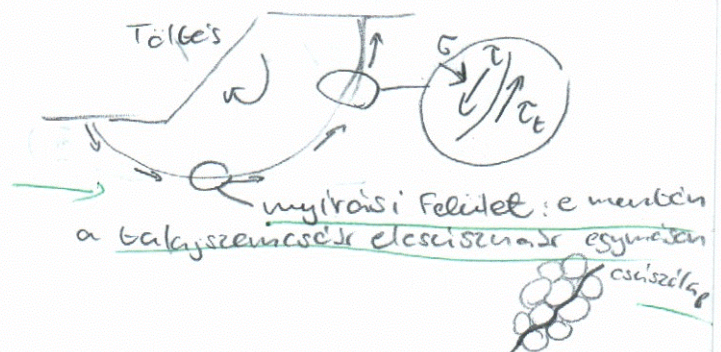 Töltés
σ τ
τt
nyírási felület: e mentén
a talajszemcsék elcsúsznak egymáson
csúszólap